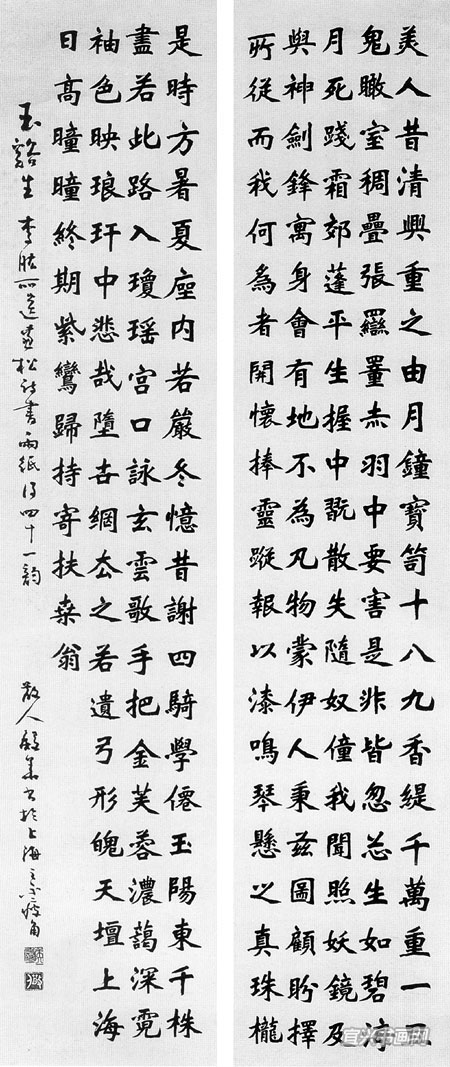 美人昔清興重之由月鐘寶笥十八九香緹千萬重一旦
鬼瞰室稠疊張羉罿赤羽中要害是非皆怱怱生如碧海
月死踐霜郊蓬平生握中翫散失隨奴僮我聞照妖鏡及
與神劍鋒寓身會有地不為凡物蒙伊人秉茲圖顧盼擇
所從而我何為者開懷捧靈蹤報以漆鳴琴懸之真珠櫳
是時方暑夏座內若嚴冬憶昔謝四騎學僊玉陽東千株
盡若此路入瓊瑤宮口詠玄雲歌手把金芙蓉濃藹深霓
袖色映琅玕中悲哉墮世網去之若遺弓形魄天壇上海
日高曈曈終期紫鸞歸持寄扶桑翁
玉谿生李肱所遺畫松詩書兩紙得四十一韵 散人 書於上海
宜兴书画